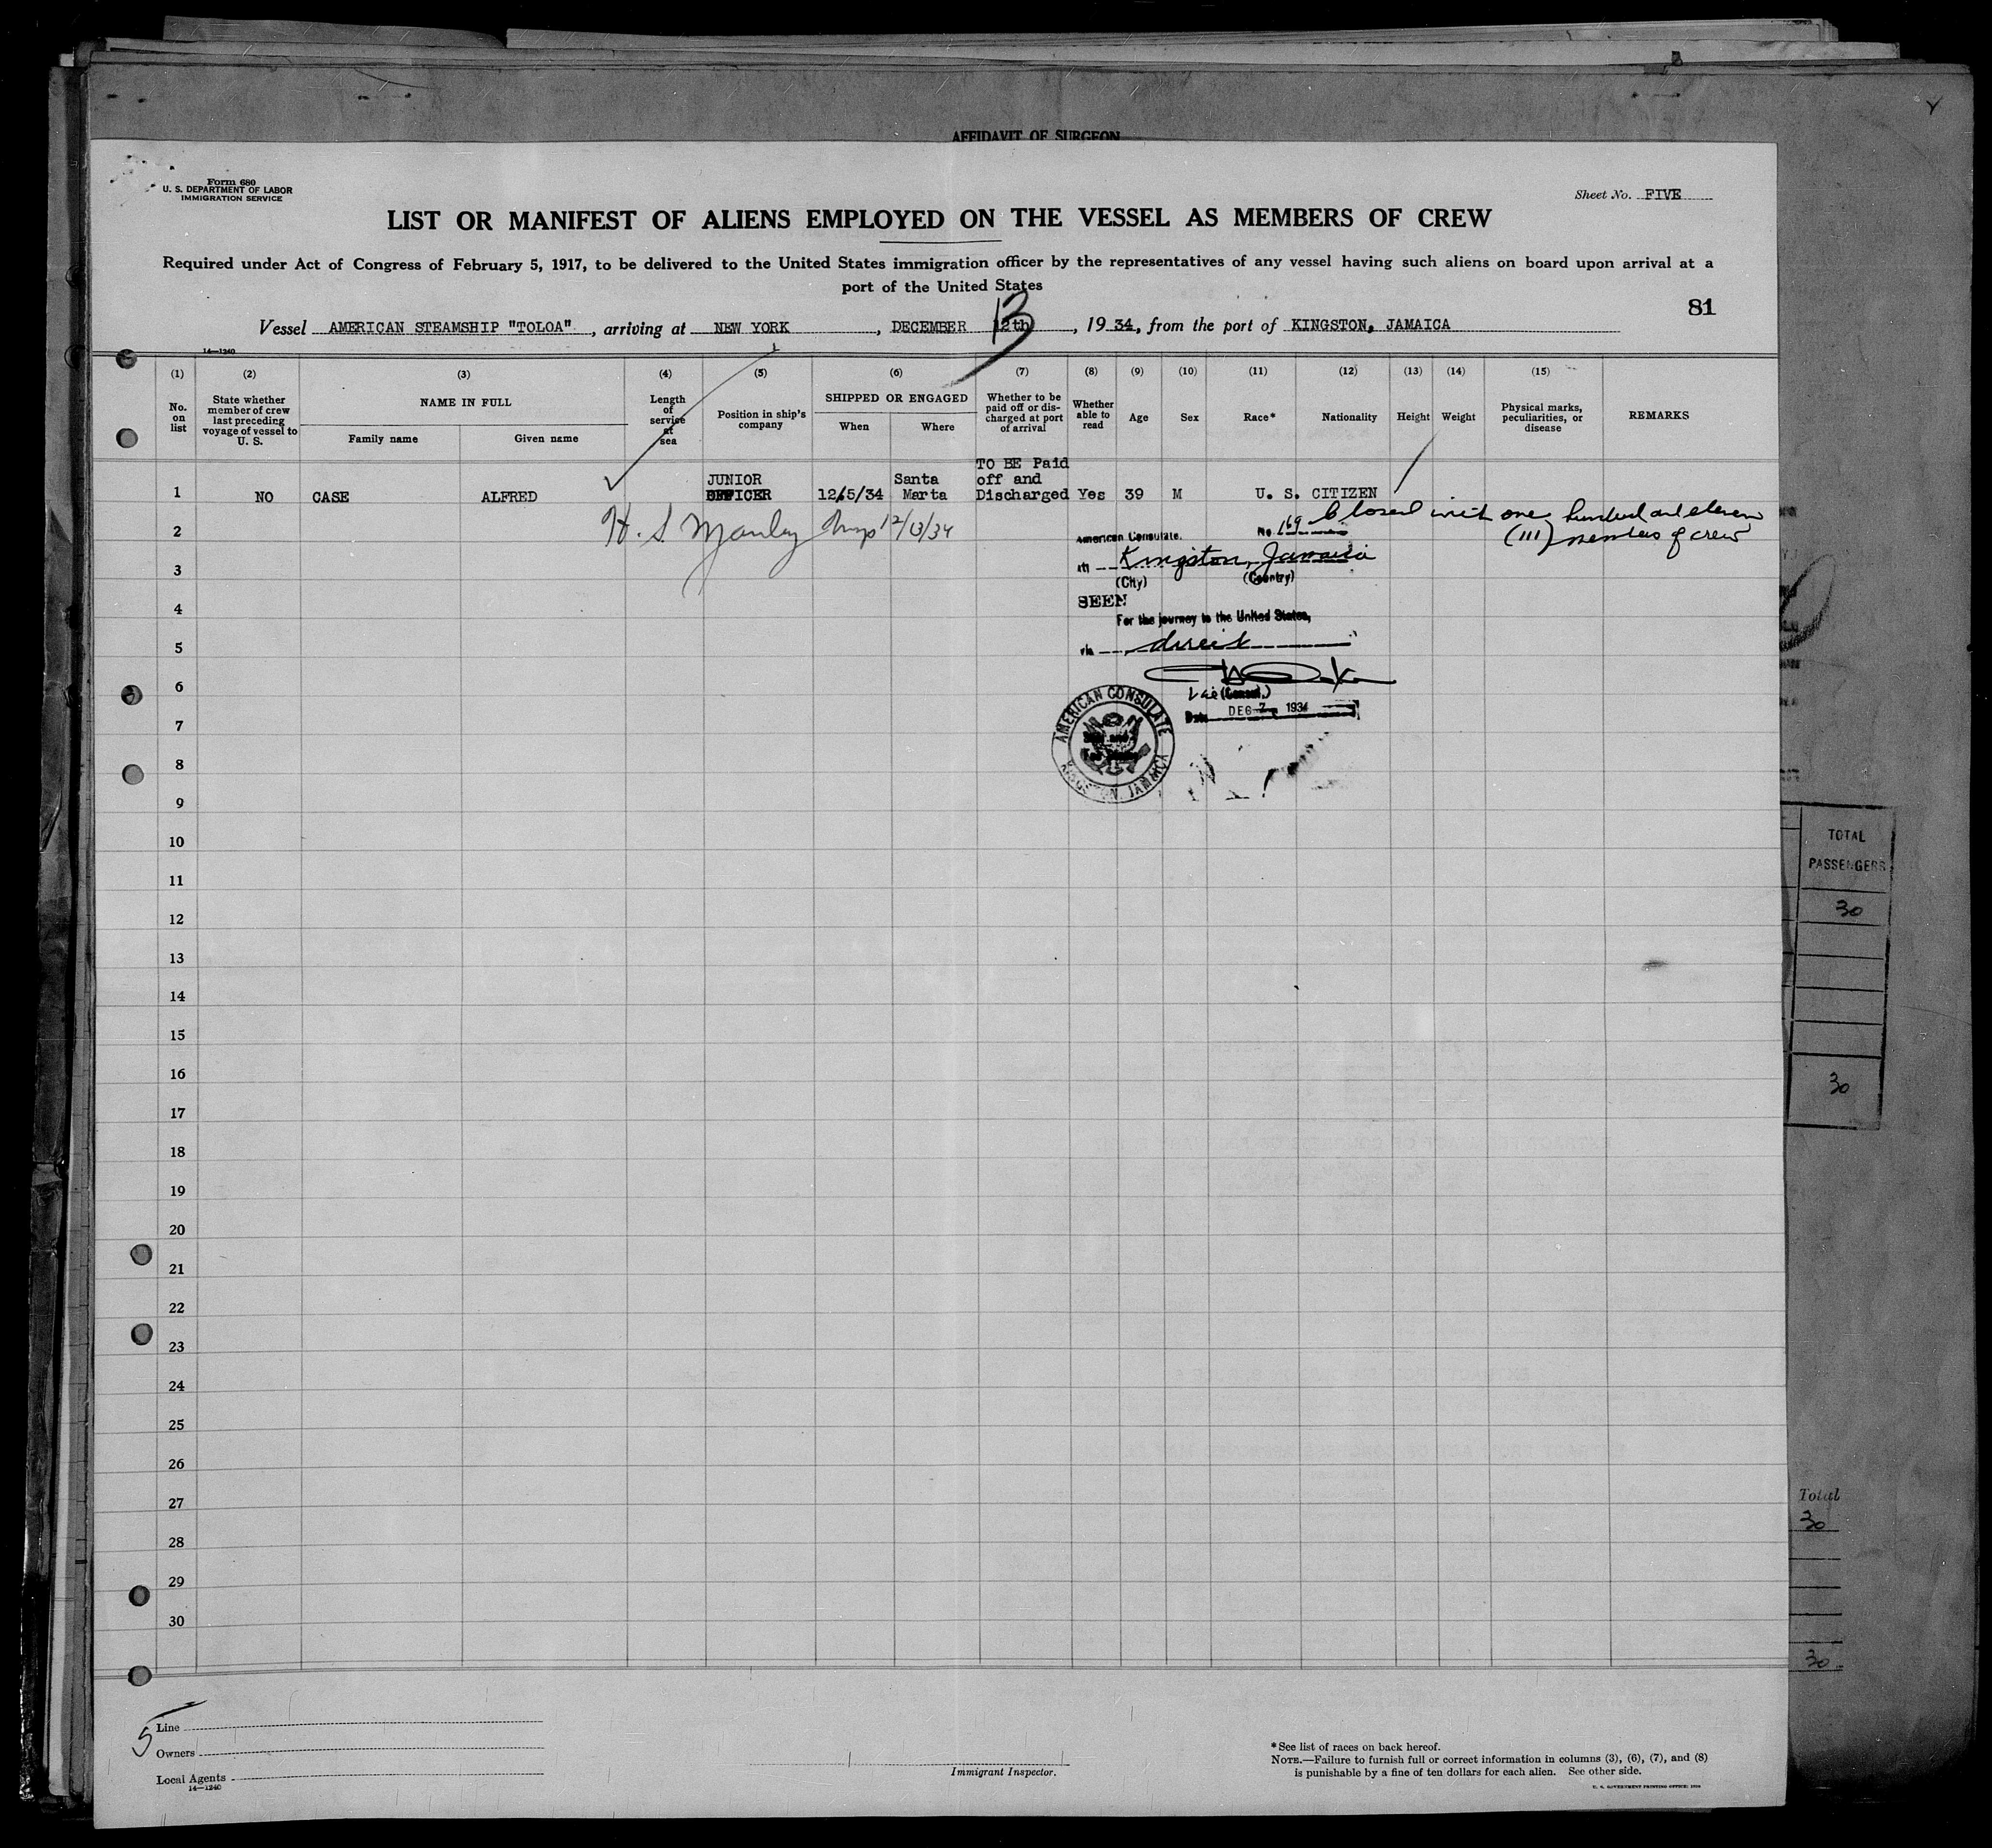 AFFIDAVIT OF SURGEON
Form 680
U. S. DEPARTMENT OF LABOR
IMMIGRATION SERVICE
Sheet No. FIVE
LIST OR MANIFEST OF ALIENS EMPLOYED ON THE VESSEL AS MEMBERS OF CREW
Required under Act of Congress of February 5, 1917, to be delivered to the United States immigration officer by the representatives of any vessel having such aliens on board upon arrival at a
port of the United States
81
13
Vessel AMERICAN STEAMSHIP "TOLOA", arriving at NEW YORK, DECEMBER 12th, 1934, from the port of KINGSTON, JAMAICA
14—1240
(1) (2) (3) (4) (5) (6) (7) (8) (9) (10) (11) (12) (13) (14) (15)
No. on list
State whether member of crew last preceding voyage of vessel to U. S.
NAME IN FULL
Family name
Given name
Length of service at sea
Position in ship's company
SHIPPED OR ENGAGED
When
Where
Whether to be paid off or discharged at port of arrival
Whether able to read
Age
Sex
Race*
Nationality
Height
Weight
Physical marks, peculiarities, or disease
REMARKS
1 NO CASE ALFRED JUNIOR OFFICER 12/5/34 Santa Marta TO BE Paid off and Discharged Yes 39 M U. S. CITIZEN
H. S. Manley Insp 12/13/34
Closed with one hundred and eleven
(111) members of crew
American Consulate. No. 169
at Kingston, Jamaica
(City) (Country)
SEEN
For the journey to the United States,
via direct
Vice (Consul.)
Date DEC 7 1934
AMERICAN CONSULATE
KINGSTON, JAMAICA
2
3
4
5
6
7
8
9
10
11
12
13
14
15
16
17
18
19
20
21
22
23
24
25
26
27
28
29
30
TOTAL
PASSENGERS
30
30
Total
30
30
5
Line
Owners
Local Agents
14—1240
Immigrant Inspector.
*See list of races on back hereof.
NOTE.—Failure to furnish full or correct information in columns (3), (6), (7), and (8)
is punishable by a fine of ten dollars for each alien. See other side.